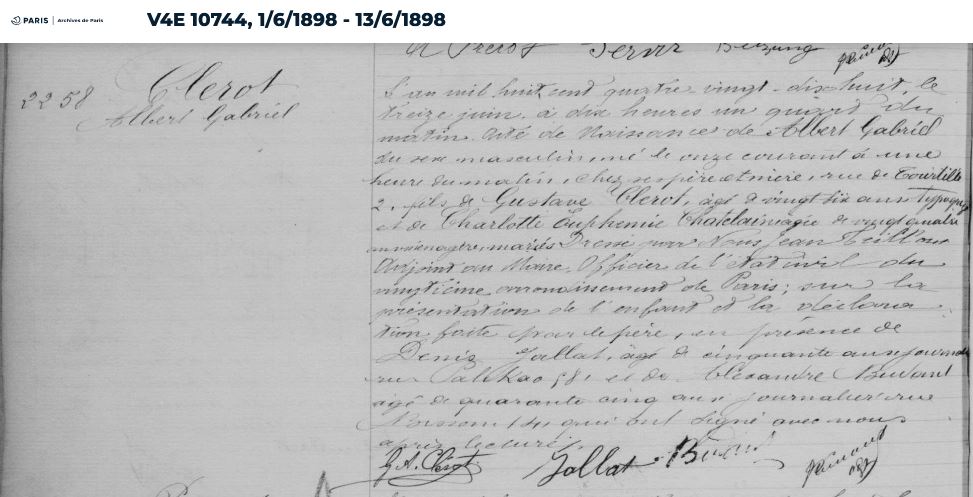 PARIS | Archives de Paris
V4E 10744, 1/6/1898 - 13/6/1898
2258
Clerot
Albert Gabriel
L'an mil huit cent quatre vingt-dix-huit, le
treize juin, à dix heures un quart du
matin. Acte de Naissance de Albert Gabriel
du sexe masculin, né le onze courant à une
heure du matin, chez ses père et mère, rue de Tourtille
2, fils de Gustave Clerot, âgé de vingt six ans, typogr
et de Charlotte Euphemie Chatelain âgée de vingt quatre
ans ménagère, mariés Dressé par Nous, Jean
Adjoint au Maire, Officier de l'état civil du
vingtième arrondissement de Paris; sur la
présentation de l'enfant et la déclara
tion faite par le père, en présence de
Denis Jallat, âgé de cinquante ans journ
rue Palikao 58, et de Alexandre
âgé de quarante cinq ans journalier rue
qui ont signé avec nous
après lecture.
G. A. Clerot Jallat